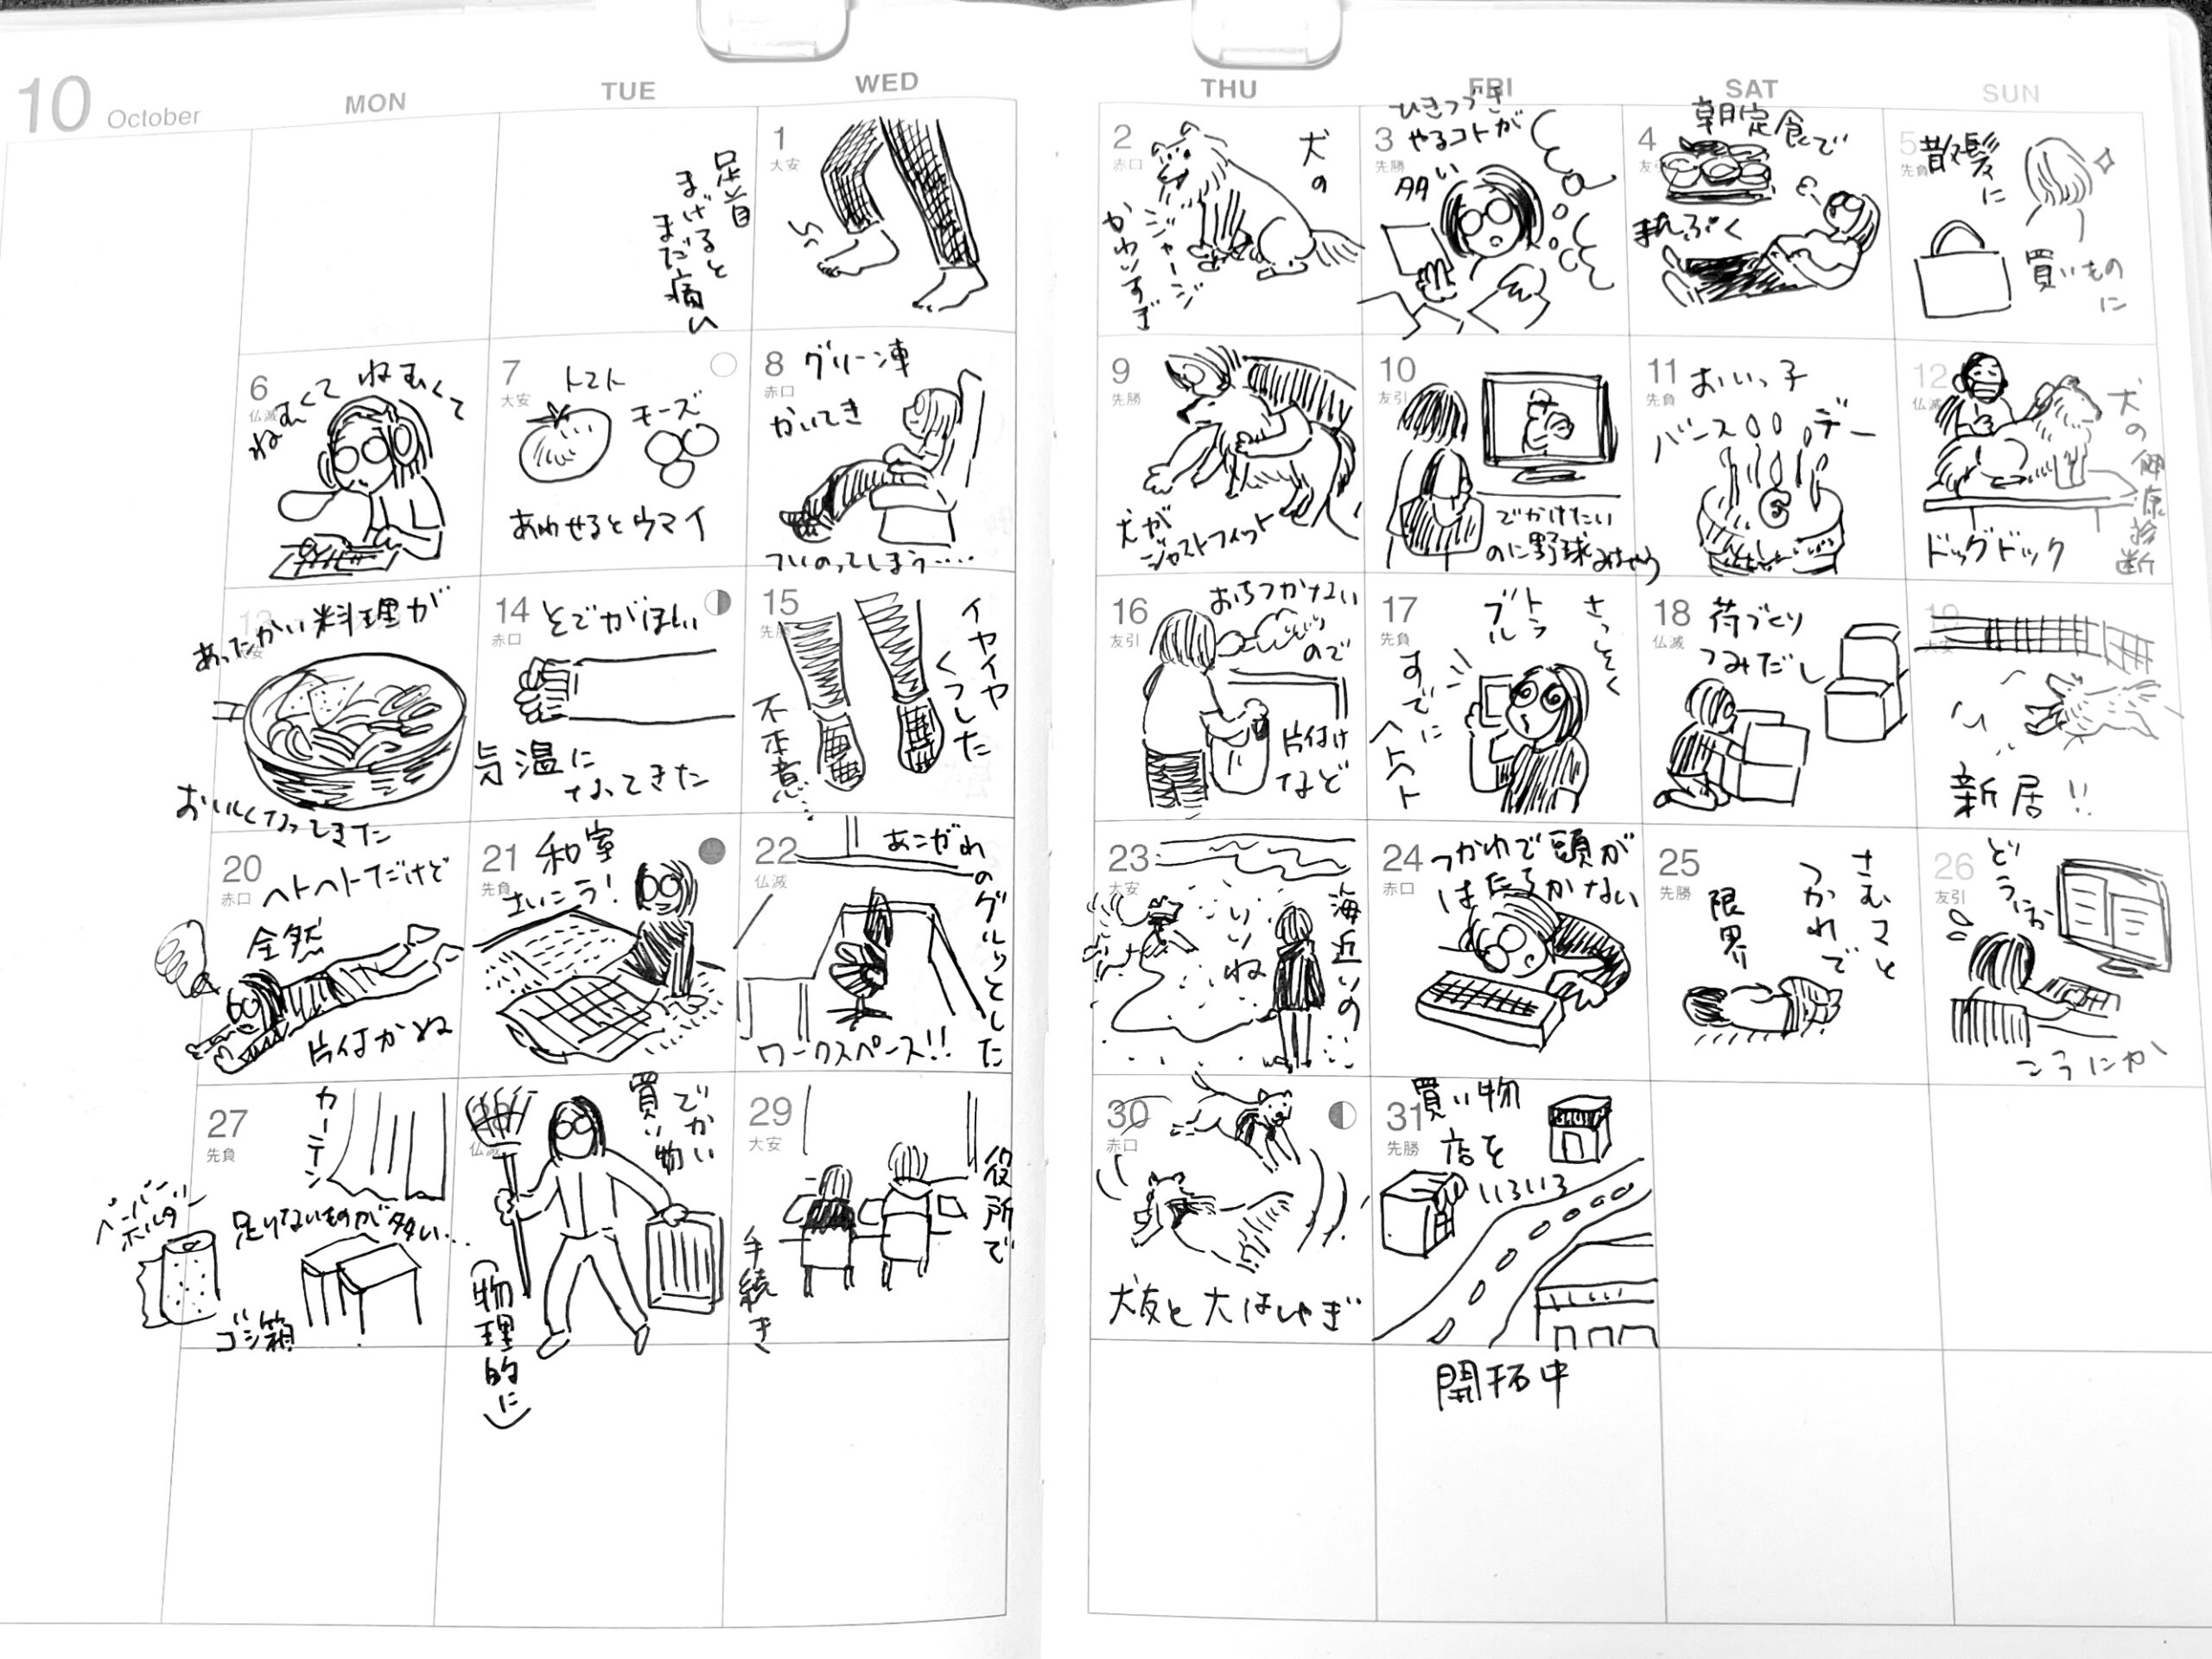 10 October
MON
TUE
WED
THU
FRI
SAT
SUN
1
大安
足首
まげると
まだ痛い
2
赤口
犬の
ジャージ
かわいすぎ
3
先勝
ひきつづき
やるコトが
多い
4
友引
朝定食で
まんぷく
5
先負
散髪
に
買いもの
に
6
仏滅
ねむくて ねむくて
7
大安
トマト
チーズ
あわせるとウマイ
8
赤口
グリーン車
かいてき
ついのってしまう……
9
先勝
犬が
ジャストフィット
10
友引
でかけたい
のに野球みちゃう
11
先負
おいっ子
バースデー
12
仏滅
犬の健康診断
ドッグドック
13
大安
あったかい料理が
おいしくなってきた
14
赤口
そでがほしい
気温に
なってきた
15
先勝
イヤイヤ
くつした
不本意…
16
友引
おちつかない
ので
片付け
など
17
先負
さっそく
トラ
ブル
すでに
ヘトヘト
18
仏滅
荷づくり
つみだし
19
大安
新居!!
20
赤口
ヘトヘトだけど
全然
片付かぬ
21
先負
和室
さいこう!
22
仏滅
あこがれ
のグルッとした
ワークスペース!!
23
大安
海近いの
いいね
24
赤口
つかれで頭が
はたらかない
25
先勝
さむさと
つかれで
限界
26
友引
どうにか
こうにか
27
先負
カーテン
ペーパー
ホルダー
足りないものが多い…
ゴミ箱
28
仏滅
でかい
買い物
(物理的に)
29
大安
役所で
手続き
30
赤口
犬友と大はしゃぎ
31
先勝
買い物
店を
いろいろ
開拓中